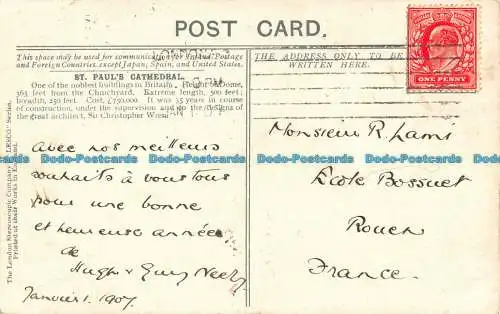 POST CARD.
This space may be used for communication for Inland Postage
and Foreign Countries, except Japan, Spain, and United States.
ST. PAUL'S CATHEDRAL.
One of the noblest buildings in Britain. Height of Dome,
365 feet from the Churchyard. Extreme length, 500 feet;
breadth, 250 feet. Cost, £750,000. It was 35 years in course
of construction, under the supervision and to the designs of
the great architect, Sir Christopher Wren.
Avec nos meilleurs
souhaits à vous tous
pour une bonne
et heureuse année
de
Hugh & Guy
Janvier 1. 1907.
The London Stereoscopic Company "LESCO" Series.
Printed at their Works in England.
THE ADDRESS ONLY TO BE
WRITTEN HERE.
ONE PENNY
Monsieur R. Lami
École Bossuet
Rouen
France.
Dodo-Postcards Dodo-Postcards Dodo-Postcards Dodo-Postcards
Dodo-Postcards Dodo-Postcards Dodo-Postcards Dodo-Postcards